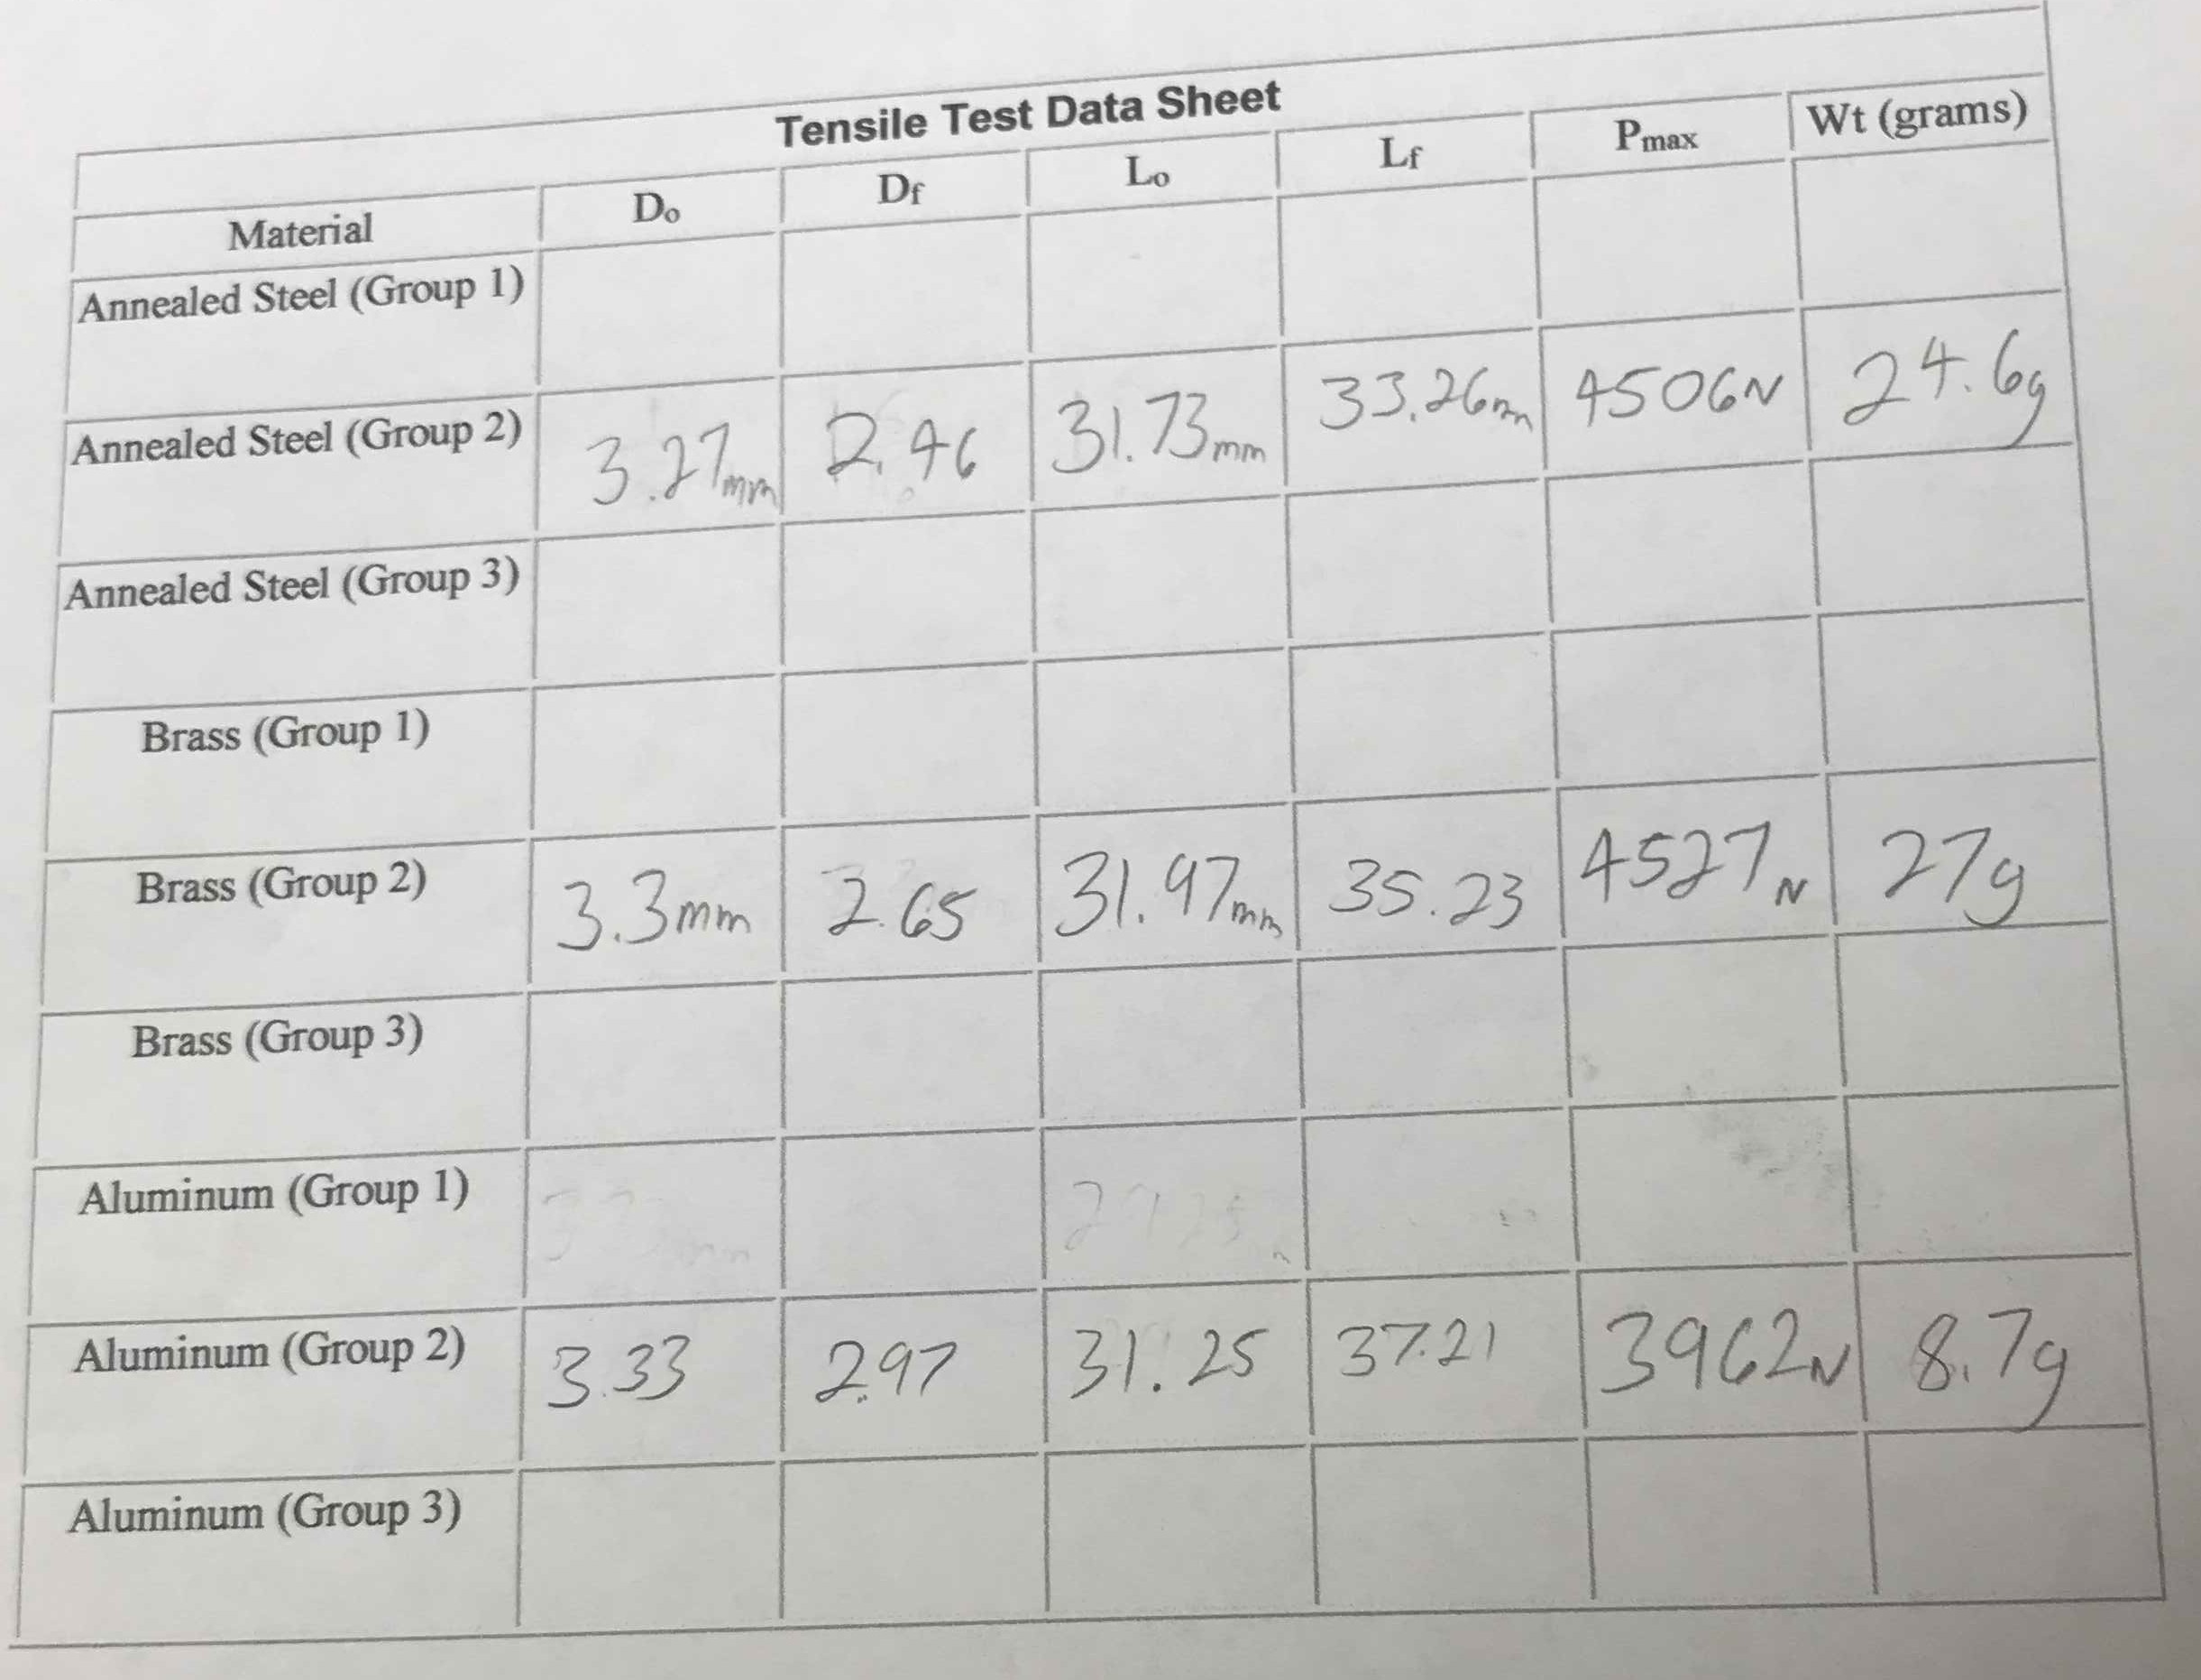 Tensile Test Data Sheet
Material Do Df Lo Lf Pmax Wt (grams)
Annealed Steel (Group 1)
Annealed Steel (Group 2) 3.27mm 2.46 31.73mm 33.26mm 4506N 24.6g
Annealed Steel (Group 3)
Brass (Group 1)
Brass (Group 2) 3.3mm 2.65 31.97mm 35.23 4527N 27g
Brass (Group 3)
Aluminum (Group 1)
Aluminum (Group 2) 3.33 2.97 31.25 37.21 3962N 8.7g
Aluminum (Group 3)